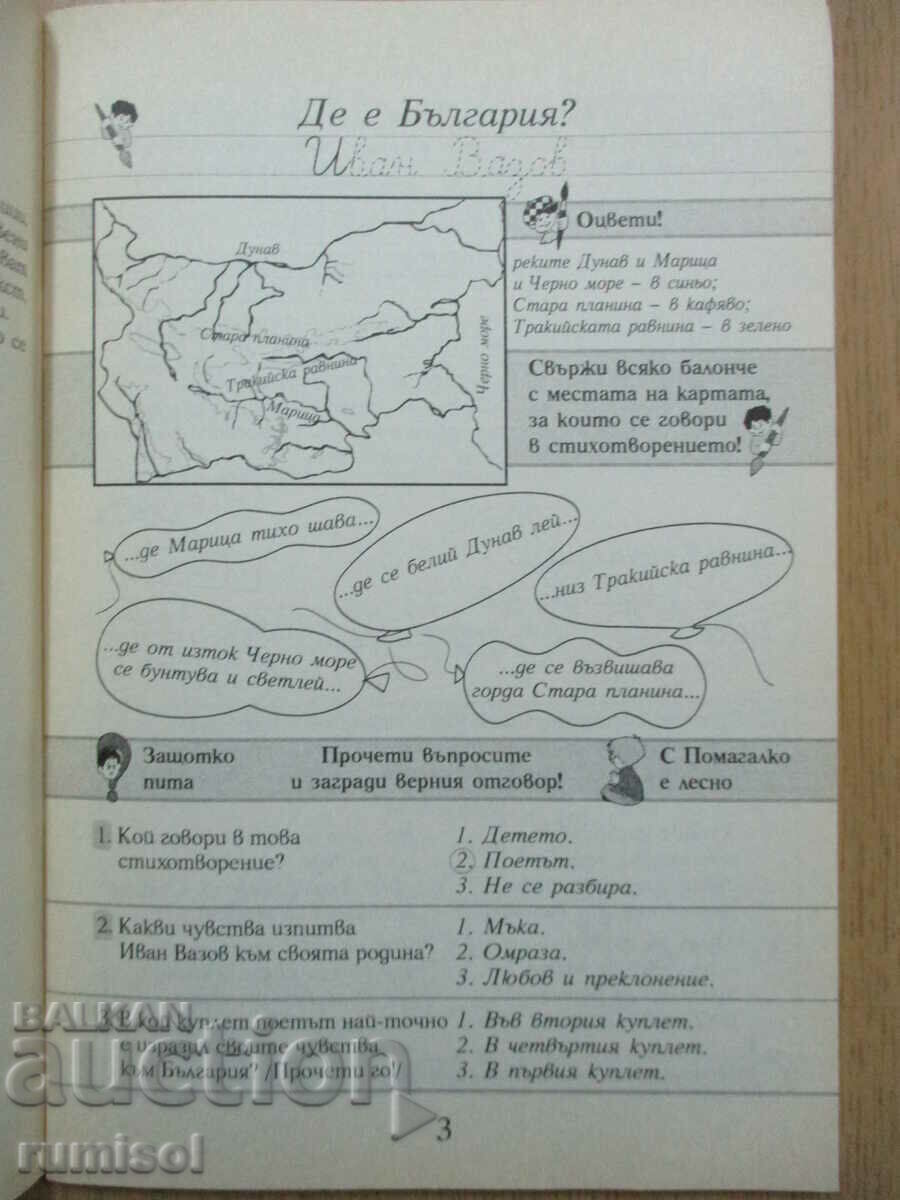 Де е България?
Иван Вазов
Дунав
Стара планина
Тракийска равнина
Марица
Черно море
Оцвети!
реките Дунав и Марица
и Черно море – в синьо;
Стара планина – в кафяво;
Тракийската равнина – в зелено
Свържи всяко балонче
с местата на картата,
за които се говори
в стихотворението!
...де Марица тихо шава...
...де се белий Дунав лей...
...низ Тракийска равнина...
...де от изток Черно море
се бунтува и светлей...
...де се възвишава
горда Стара планина...
Защотко
пита
Прочети въпросите
и загради верния отговор!
С Помагалко
е лесно
1. Кой говори в това
стихотворение?
1. Детето.
2. Поетът.
3. Не се разбира.
2. Какви чувства изпитва
Иван Вазов към своята родина?
1. Мъка.
2. Омраза.
3. Любов и преклонение.
3. В кой куплет поетът най-точно
е изразил своите чувства
към България? /Прочети го!/
1. Във втория куплет.
2. В четвъртия куплет.
3. В първия куплет.
3
BALKAN
auction
rumisol